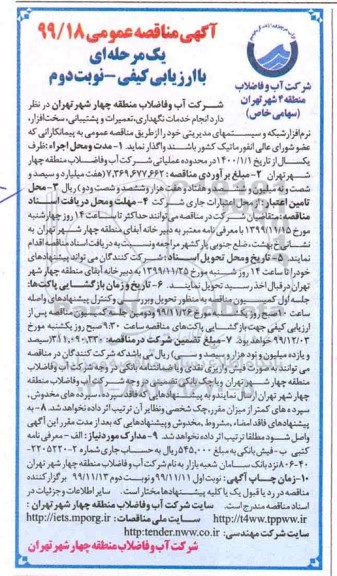 آگهی مناقصه عمومی ۹۹/۱۸
یک مرحله ای
با ارزیابی کیفی - نوبت دوم
شرکت آب و فاضلاب
منطقه ۴ شهر تهران
(سهامی خاص)
شرکت آب و فاضلاب منطقه چهار شهر تهران در نظر
دارد انجام خدمات نگهداری، تعمیرات و پشتیبانی، سخت‌افزار،
نرم افزار شبکه و سیستمهای مدیریتی خود را از طریق مناقصه عمومی به پیمانکارانی که
عضو شورای عالی انفورماتیک کشور باشند واگذار نماید. ۱- مدت و محل اجراء: ظرف
یکسال از تاریخ ۱۴۰۰/۱/۱ در محدوده عملیاتی شرکت آب و فاضلاب منطقه چهار
شهر تهران ۲- مبلغ برآوردی مناقصه: ۷,۳۶۹,۶۷۷,۶۶۲ (هفت میلیارد و سیصد و
شصت و نه میلیون و ششصد و هفتاد و هفت هزار و ششصد و شصت و دو) ریال ۳- محل
تامین اعتبار: از محل اعتبارات جاری شرکت ۴- مهلت و محل دریافت اسناد
مناقصه: متقاضیان شرکت در مناقصه می‌توانند حداکثر تا ساعت ۱۴ روز چهارشنبه
مورخ ۱۳۹۹/۱۱/۱۵ با معرفی نامه معتبر به دبیرخانه آبفای منطقه چهار شهر تهران به
نشانی خ بهشت، ضلع جنوبی پارک شهر مراجعه و نسبت به دریافت اسناد مناقصه اقدام
نمایند. ۵- تاریخ و محل تحویل اسناد: شرکت کنندگان می تواند پیشنهادهای
خود را تا ساعت ۱۴ روز شنبه مورخ ۱۳۹۹/۱۱/۲۵ به دبیرخانه آبفای منطقه چهار شهر
تهران در قبال اخذ رسید تحویل نمایند. ۶- تاریخ و زمان بازگشایی پاکت‌ها:
جلسه اول کمیسیون مناقصه به منظور تحویل و بررسی و کنترل پیشنهادهای واصله
ساعت ۱۰ صبح روز یکشنبه مورخ ۹۹/۱۱/۲۶ و دومین جلسه کمیسیون مناقصه پس از
ارزیابی کیفی جهت بازگشایی پاکت‌های مناقصه ساعت ۹:۳۰ صبح روز یکشنبه مورخ
۹۹/۱۲/۰۳ خواهد بود. ۷- مبلغ تضمین شرکت در مناقصه: ۳۱۱,۰۹۰,۳۳۰ (سیصد
و یازده میلیون و نود هزار و سیصد و سی) ریال می باشد که شرکت کنندگان در مناقصه
می توانند به صورت فیش واریزی نقدی و یا ضمانتنامه بانکی در وجه شرکت آب و فاضلاب
منطقه چهار شهر تهران و یا چک بانکی تضمین شده در وجه شرکت آب و فاضلاب منطقه
چهار شهر تهران ارسال نمایند و به پیشنهادهایی که فاقد سپرده، سپرده های مخدوش،
سپرده های کمتر از میزان مقرر، چک شخصی و نظایر آن ترتیب اثر داده نخواهد شد. ۸- به
پیشنهادهای فاقد امضاء، مشروط، مخدوش و پیشنهادهایی که بعد از مدت مقرر این آگهی
واصل شود مطلقا ترتیب اثر داده نخواهد شد. ۹- مدارک مورد نیاز: الف - معرفی نامه
کتبی ب - فیش بانکی به مبلغ ۵۴۵,۰۰۰ ریال به حساب جاری شماره ۲-۲۲۰۵۲۲۰-
۴۰-۸۰۶ نزد بانک سامان شعبه بازار به نام شرکت آب و فاضلاب منطقه چهار شهر تهران
۱۰- زمان چاپ آگهی: نوبت اول ۹۹/۱۱/۱۱ و نوبت دوم ۹۹/۱۱/۱۳ برگزار کننده
مناقصه در رد یا قبول یک یا کلیه پیشنهادها مختار است. سایر اطلاعات و جزئیات در
اسناد مناقصه مندرج است. سایت شرکت آب و فاضلاب منطقه چهار شهر تهران :
http://t4ww.tppww.ir سایت ملی مناقصات: http://iets.mporg.ir
سایت شرکت مهندسی: http:tender.nww.co.ir
شرکت آب و فاضلاب منطقه چهار شهر تهران